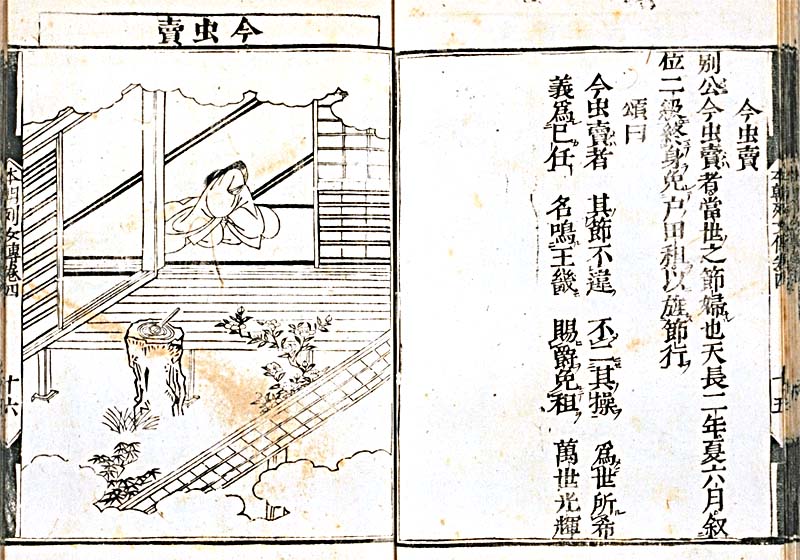 今虫賣
別公今虫賣者當世之節婦也天長二年夏六月叙
位二級終身免戸田租以旌節行
頌曰
今虫賣者 其節不違 不二其操 爲世所希
義爲已任 名鳴王畿 賜爵免租 萬世光輝
本朝列女傳卷四
十五
今虫賣
本朝列女傳卷四
十六